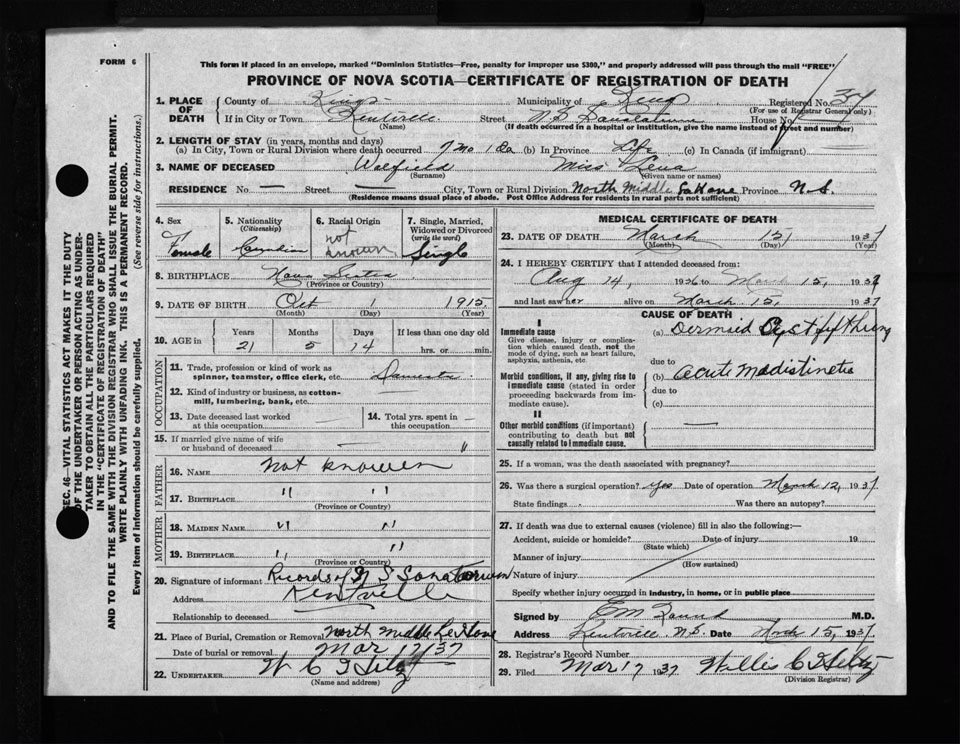 FORM 6
This form if placed in an envelope, marked "Dominion Statistics—Free, penalty for improper use $300," and properly addressed will pass through the mail "FREE"
PROVINCE OF NOVA SCOTIA—CERTIFICATE OF REGISTRATION OF DEATH
1. PLACE OF DEATH
County of Kings Municipality of Kings Registered No. 34
(For use of Registrar General only)
If in City or Town Kentville Street N S Sanatorium House No.
(Name) (If death occurred in a hospital or institution, give the name instead of street and number)
2. LENGTH OF STAY (in years, months and days)
(a) In City, Town or Rural Division where death occurred 7 mo 1 da (b) In Province Life (c) In Canada (if immigrant)
3. NAME OF DECEASED Miss Lena
(Surname) (Given name or names)
RESIDENCE No — Street — City, Town or Rural Division North Middle Province N.S.
(Residence means usual place of abode. Post Office Address for residents in rural parts not sufficient)
4. Sex Female
5. Nationality (Citizenship) Canadian
6. Racial Origin not known
7. Single, Married, Widowed or Divorced (write the word) Single
8. BIRTHPLACE Nova Scotia
(Province or Country)
9. DATE OF BIRTH Oct 1 1915
(Month) (Day) (Year)
10. AGE in Years Months Days If less than one day old
21 5 14 hrs. or min.
OCCUPATION
11. Trade, profession or kind of work as spinner, teamster, office clerk, etc. Domestic
12. Kind of industry or business, as cotton-mill, lumbering, bank, etc.
13. Date deceased last worked at this occupation —
14. Total yrs. spent in this occupation —
15. If married give name of wife or husband of deceased — "
FATHER
16. NAME not knowen
17. BIRTHPLACE " "
(Province or Country)
MOTHER
18. MAIDEN NAME " "
19. BIRTHPLACE " "
(Province or Country)
20. Signature of informant Records of N S Sanatorium
Address Kentville
Relationship to deceased
21. Place of Burial, Cremation or Removal North Middle
Date of burial or removal Mar 17/37
22. UNDERTAKER W C
(Name and address)
MEDICAL CERTIFICATE OF DEATH
23. DATE OF DEATH March 15 1937
(Month) (Day) (Year)
24. I HEREBY CERTIFY that I attended deceased from:
Aug 14, 1936 to March 15, 1937
and last saw her alive on March 15, 1937
CAUSE OF DEATH
I
Immediate cause
Give disease, injury or complication which caused death, not the mode of dying, such as heart failure, asphyxia, asthenia, etc.
(a) Dermoid Cyst of thymus
due to
Morbid conditions, if any, giving rise to immediate cause (stated in order proceeding backwards from immediate cause).
(b) acute
due to
(c)
II
Other morbid conditions (if important) contributing to death but not causally related to immediate cause. —
25. If a woman, was the death associated with pregnancy?
26. Was there a surgical operation? yes Date of operation March 12, 1937
State findings Was there an autopsy?
27. If death was due to external causes (violence) fill in also the following:—
Accident, suicide or homicide? Date of injury 19
(State which)
Manner of injury
(How sustained)
Nature of injury
Specify whether injury occurred in industry, in home, or in public place
Signed by M.D.
Address Kentville N.S. Date March 15, 1937
28. Registrar's Record Number
29. Filed Mar 17 1937 Willis C
(Division Registrar)
SEC. 46—VITAL STATISTICS ACT MAKES IT THE DUTY
OF THE UNDERTAKER OR PERSON ACTING AS UNDER-
TAKER TO OBTAIN ALL THE PARTICULARS REQUIRED
IN THE "CERTIFICATE OF REGISTRATION OF DEATH"
AND TO FILE THE SAME WITH THE DIVISION REGISTRAR WHO SHALL ISSUE THE BURIAL PERMIT.
WRITE PLAINLY WITH UNFADING INK. THIS IS A PERMANENT RECORD.
Every item of information should be carefully supplied. (See reverse side for instructions.)